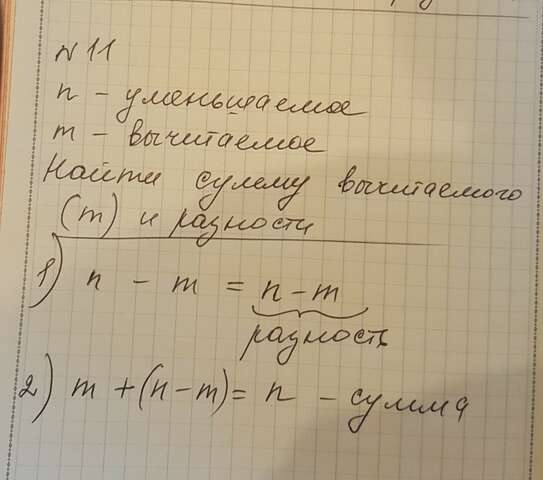 № 11
n - уменьшаемое
m - вычитаемое
Найти сумму вычитаемого
(m) и разности
1) n - m = n-m
разность
2) m + (n-m) = n - сумма